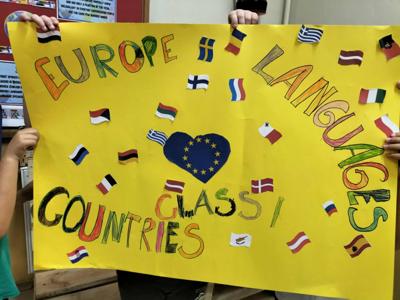 EUROPE
LANGUAGES
CLASS 1
COUNTRIES